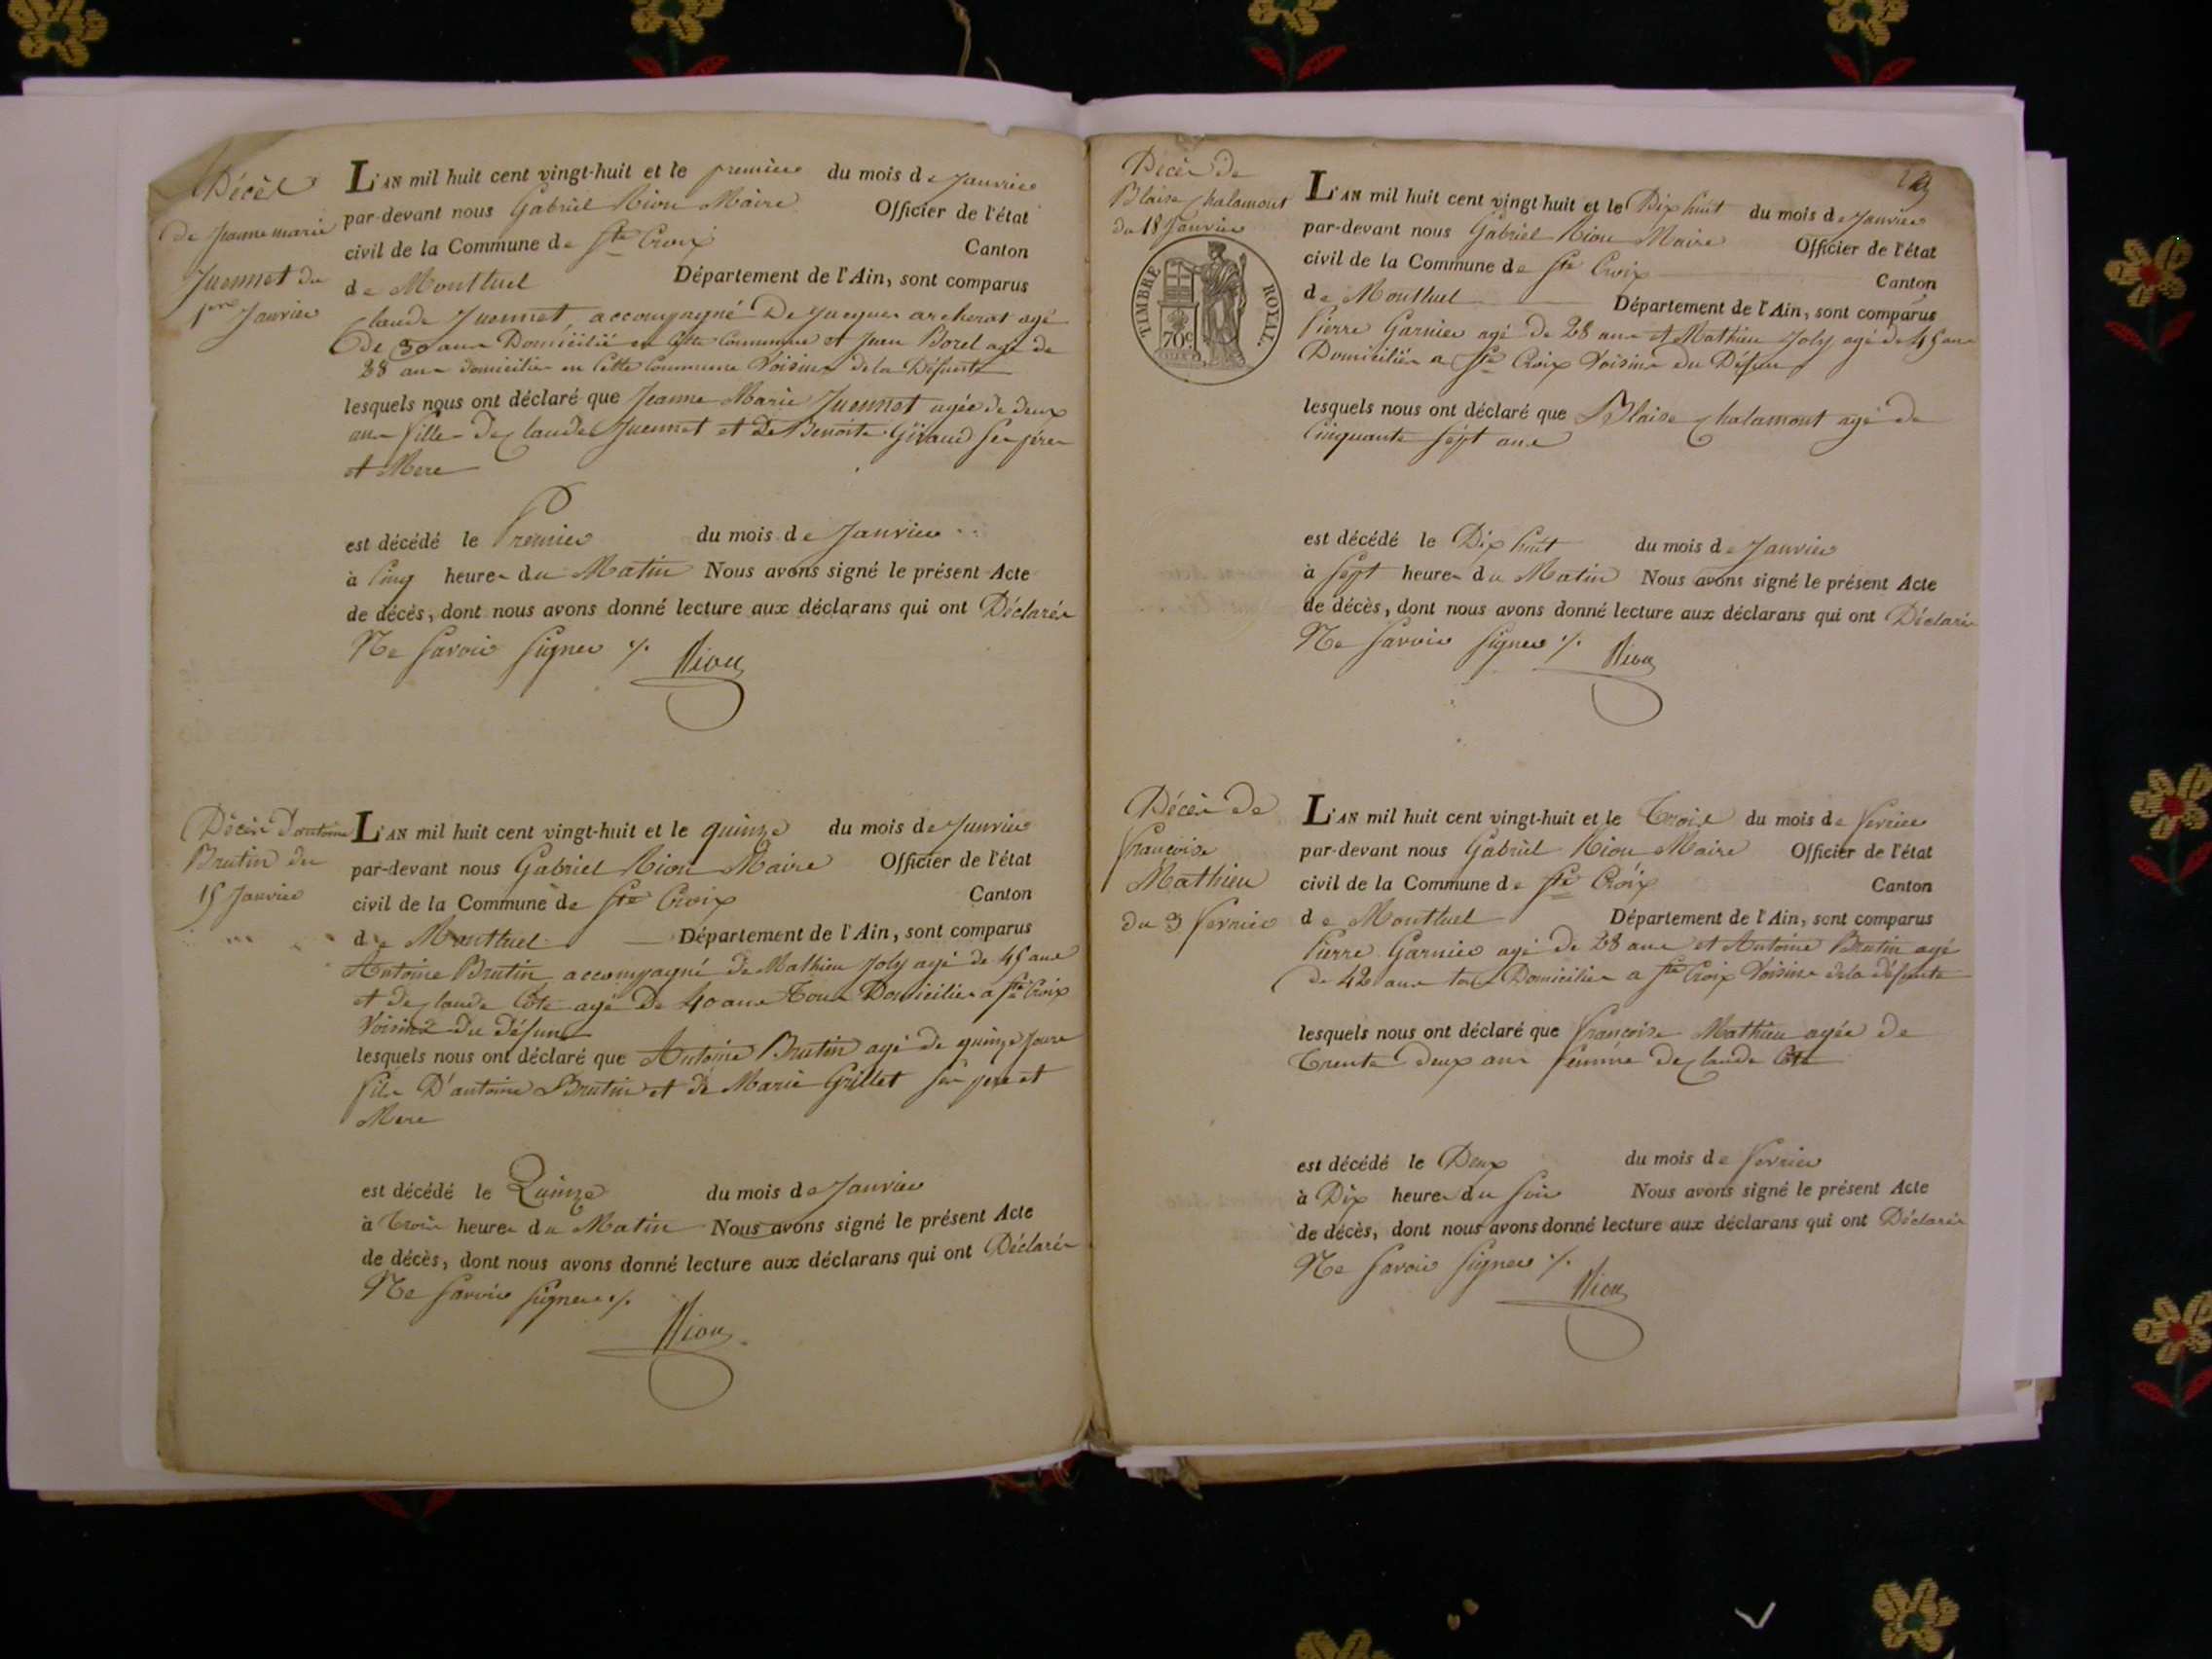 Décès
de Jeanne marie
Juennet du
1er Janvier
L'AN mil huit cent vingt-huit et le premier du mois de Janvier
par-devant nous Gabriel Riou Maire Officier de l'état
civil de la Commune de Ste Croix Canton
de Montluel Département de l'Ain, sont comparus
Claude Juennet accompagné De Jacques archerat agé
de 30 ans Domicilié en Cette Commune et Jean Borel agé de
28 ans domiciliés en Cette Commune Voisins de la Défunte
lesquels nous ont déclaré que Jeanne Marie Juennet agée de deux
ans fille de Claude Juennet et De Benoite Giraud Ses père
et Mere
est décédé le Premier du mois de Janvier
à Cinq heures du Matin Nous avons signé le présent Acte
de décès, dont nous avons donné lecture aux déclarans qui ont Déclarés
Ne Savoir Signer ./.
Riou
Décès D'antoine
Brutin du
15 Janvier
L'AN mil huit cent vingt-huit et le quinze du mois de Janvier
par-devant nous Gabriel Riou Maire Officier de l'état
civil de la Commune de Ste Croix Canton
de Montluel Département de l'Ain, sont comparus
Antoine Brutin accompagné de Mathieu Joly agé de 45 ans
et de Claude Cote agé De 40 ans Tous Domiciliés a Ste Croix
Voisins du défunt
lesquels nous ont déclaré que Antoine Brutin agé de quinze Jours
fils D'antoine Brutin et de Marie Grillet ses pere et
Mere
est décédé le Quinze du mois de Janvier
à Trois heures du Matin Nous avons signé le présent Acte
de décès, dont nous avons donné lecture aux déclarans qui ont Déclarés
Ne Savoir Signer ./.
Riou
Décès de
Blaise Chalamont
du 18 Janvier
TIMBRE ROYAL.
70c
L'AN mil huit cent vingt-huit et le Dix huit du mois de Janvier
par-devant nous Gabriel Riou Maire Officier de l'état
civil de la Commune de Ste Croix Canton
de Montluel Département de l'Ain, sont comparus
Pierre Garnier agé de 28 ans et Mathieu Joly agé de 45 ans
Domiciliés a Ste Croix Voisins du Défunt
lesquels nous ont déclaré que Blaise Chalamont agé de
Cinquante Sept ans
est décédé le Dix huit du mois de Janvier
à Sept heures du Matin Nous avons signé le présent Acte
de décès, dont nous avons donné lecture aux déclarans qui ont Déclarés
Ne Savoir Signer ./.
Riou
Décès de
françoise
Mathieu
du 3 fevrier
L'AN mil huit cent vingt-huit et le Trois du mois de fevrier
par-devant nous Gabriel Riou Maire Officier de l'état
civil de la Commune de Ste Croix Canton
de Montluel Département de l'Ain, sont comparus
Pierre Garnier agé de 28 ans et Antoine Brutin agé
de 42 ans tous Domiciliés a Ste Croix Voisins de la défunte
lesquels nous ont déclaré que françoise Mathieu agée de
Trente Deux ans femme de Claude Cote
est décédé le Deux du mois de fevrier
à Dix heures du Soir Nous avons signé le présent Acte
de décès, dont nous avons donné lecture aux déclarans qui ont Déclarés
Ne Savoir Signer ./.
Riou